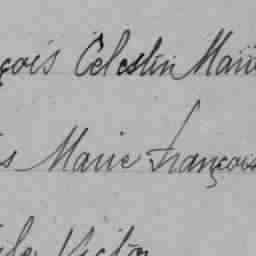 çois Celestin Mari
s Marie François
Victor